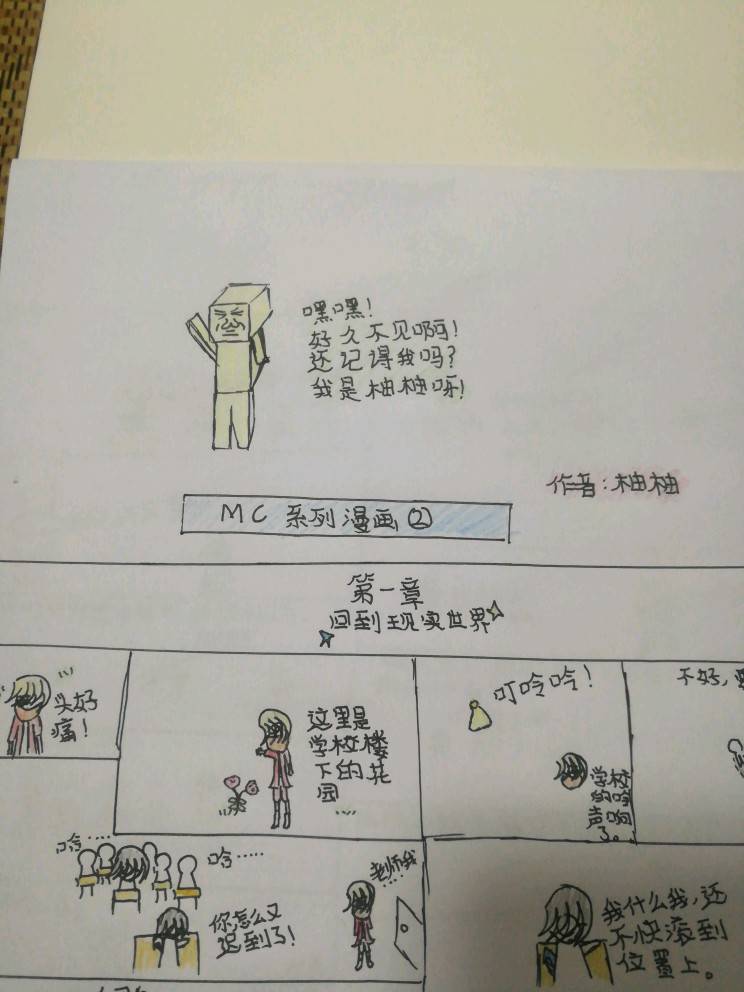 嘿嘿!
好久不见啊!
还记得我吗?
我是柚柚呀!
作者:柚柚
MC 系列漫画②
第一章
回到现实世界
头好
痛!
这里是
学校楼
下的花
园
叮呤呤!
学校
的呤
声响
了。
不好,
呤……
呤……
你怎么又
迟到了!
老师我
……
我什么我,还
不快滚到
位置上。